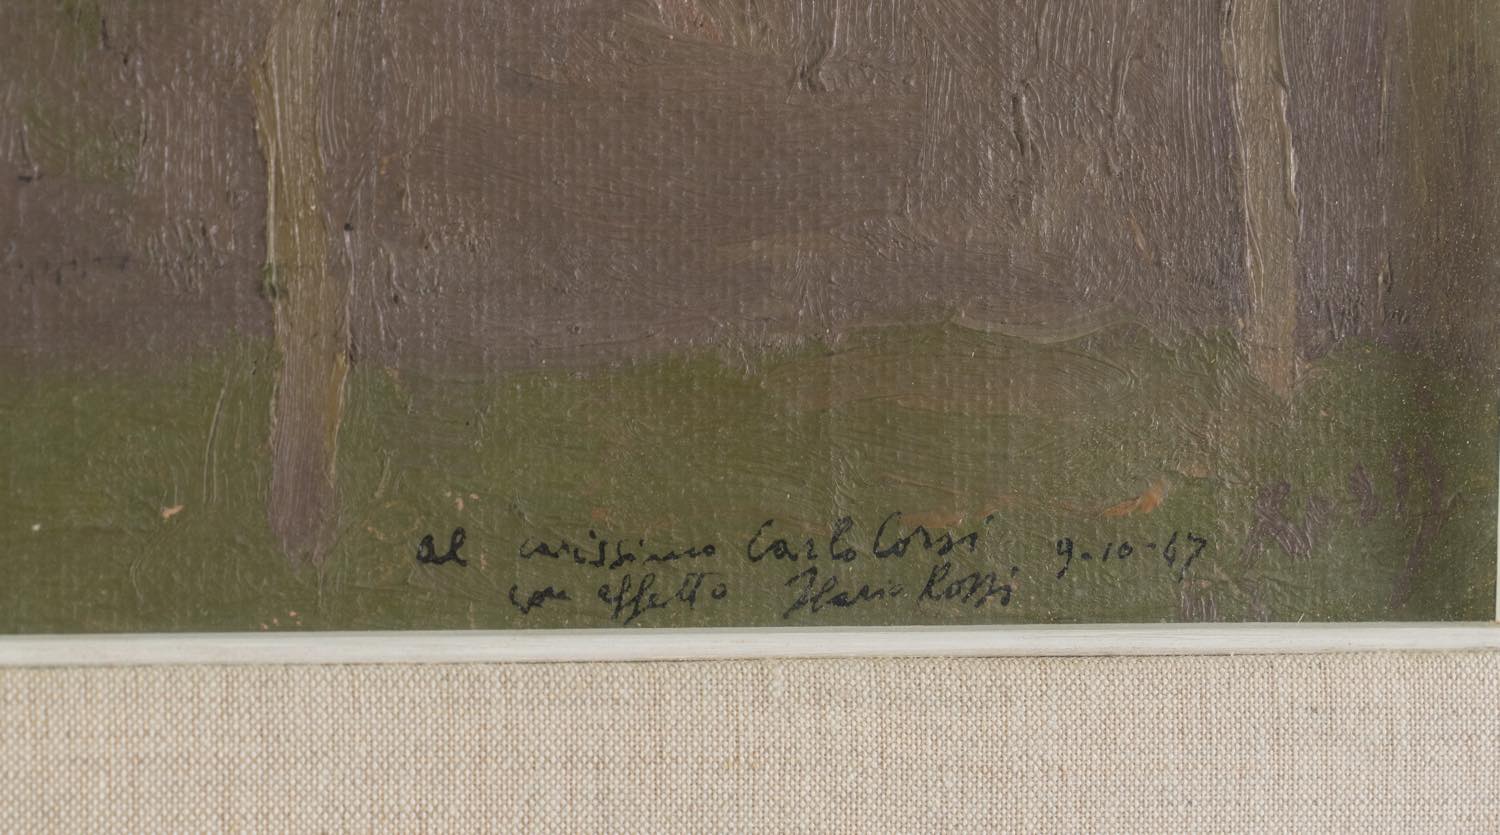 al carissimo Carlo Corsi 9-10-67
con affetto Ilario Rossi
Rossi